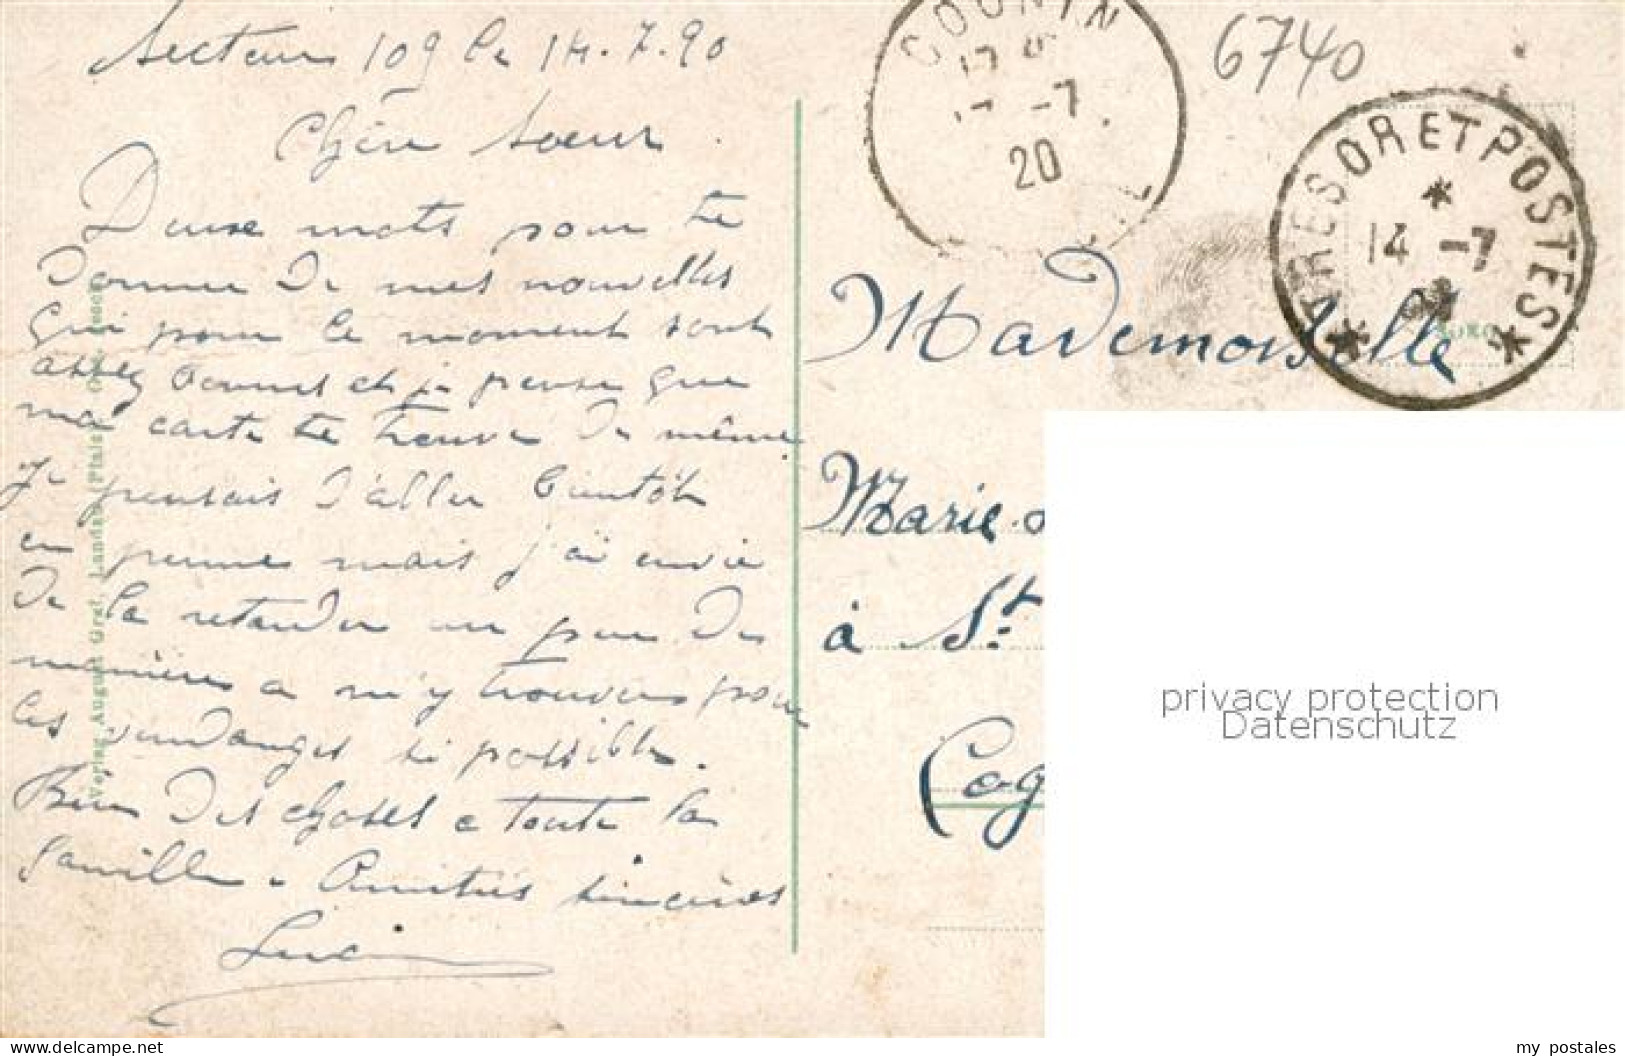 Secteur 109 le 14.7.20
Chère Soeur.
Deux mots pour te
donner de mes nouvelles
qui pour le moment sont
assez bonnes et je pense que
ma carte te trouve de même
je pensais d'aller bientôt
en perme mais j'ai envie
de la retarder un peu de
manière a m'y trouver pour
les vendanges si possible.
Bien des choses a toute la
famille. Amitiés sincères
Verlag August Graf, Landau (Pfalz)
COGNIN
-7
20
6740
TRESOR ET POSTES
14 -7
Mademoiselle
Marie
à St.
Cog
privacy protection
Datenschutz
www.delcampe.net
my_postales